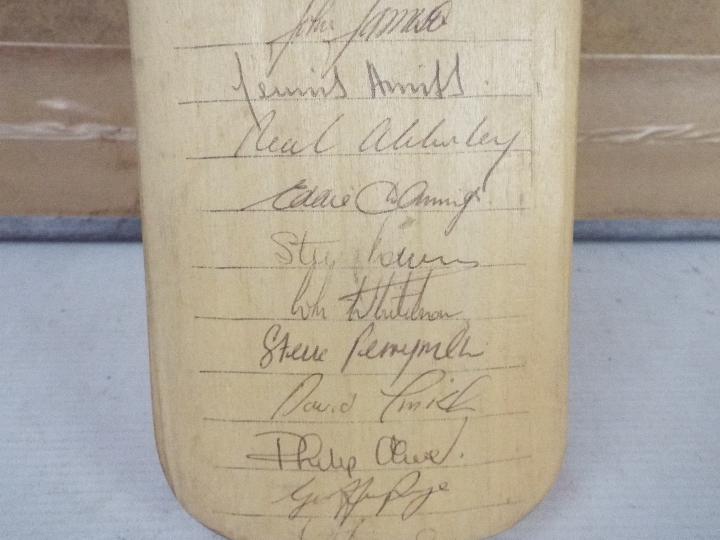 John Jameson
Dennis Amiss
Neal Abberley
Eddie Hemmings
Steve Rouse
John Whitehouse
Steve Perryman
David Smith
Philip Oliver
Geoff Humpage